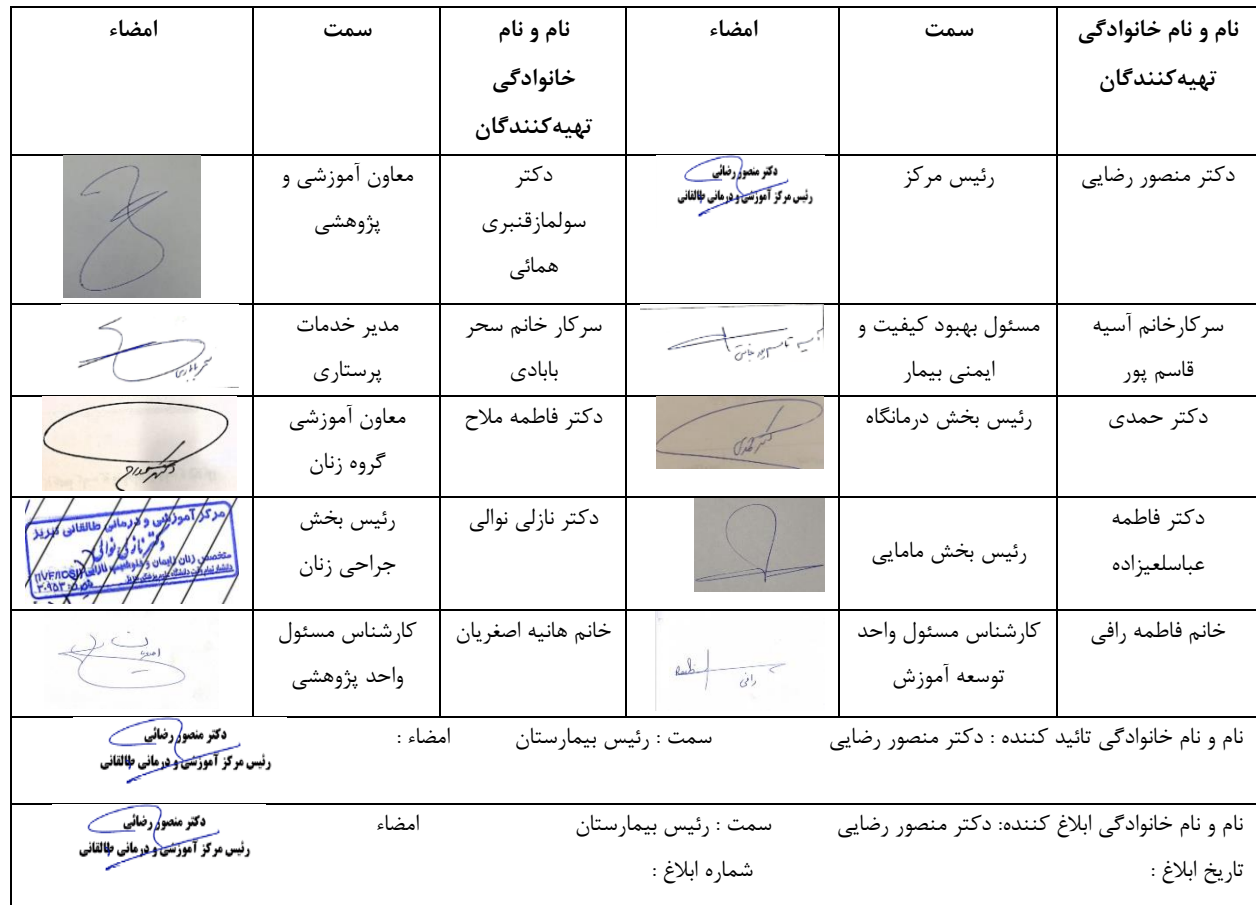 نام و نام خانوادگی
تهیه‌کنندگان
سمت
امضاء
نام و نام
خانوادگی
تهیه‌کنندگان
سمت
امضاء
دکتر منصور رضایی
رئیس مرکز
دکتر منصور رضائی
رئیس مرکز آموزشی و درمانی طالقانی
دکتر
سولمازقنبری
همائی
معاون آموزشی و
پژوهشی
سرکارخانم آسیه
قاسم پور
مسئول بهبود کیفیت و
ایمنی بیمار
سرکار خانم سحر
بابادی
مدیر خدمات
پرستاری
دکتر حمدی
رئیس بخش درمانگاه
دکتر فاطمه ملاح
معاون آموزشی
گروه زنان
دکتر فاطمه
عباسلعیزاده
رئیس بخش مامایی
دکتر نازلی نوالی
رئیس بخش
جراحی زنان
مرکز آموزشی و درمانی طالقانی تبریز
دکتر نازلی نوالی
خانم فاطمه رافی
کارشناس مسئول واحد
توسعه آموزش
رافی
خانم هانیه اصغریان
کارشناس مسئول
واحد پژوهشی
نام و نام خانوادگی تائید کننده : دکتر منصور رضایی سمت : رئیس بیمارستان امضاء :
دکتر منصور رضائی
رئیس مرکز آموزشی و درمانی طالقانی
نام و نام خانوادگی ابلاغ کننده: دکتر منصور رضایی سمت : رئیس بیمارستان امضاء
دکتر منصور رضائی
رئیس مرکز آموزشی و درمانی طالقانی
تاریخ ابلاغ : شماره ابلاغ :